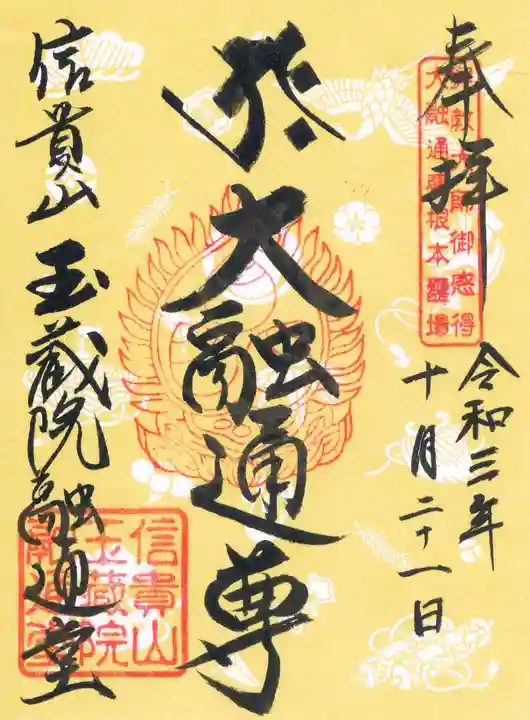 奉拝
大融通尊根本霊場
令和三年
十月二十一日
大融通尊
信貴山 玉蔵院融通堂
信貴山
玉蔵院
融通堂